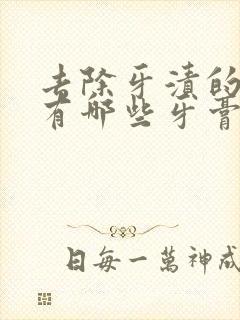 去除牙漬的
有哪些牙膏
日每一萬神成